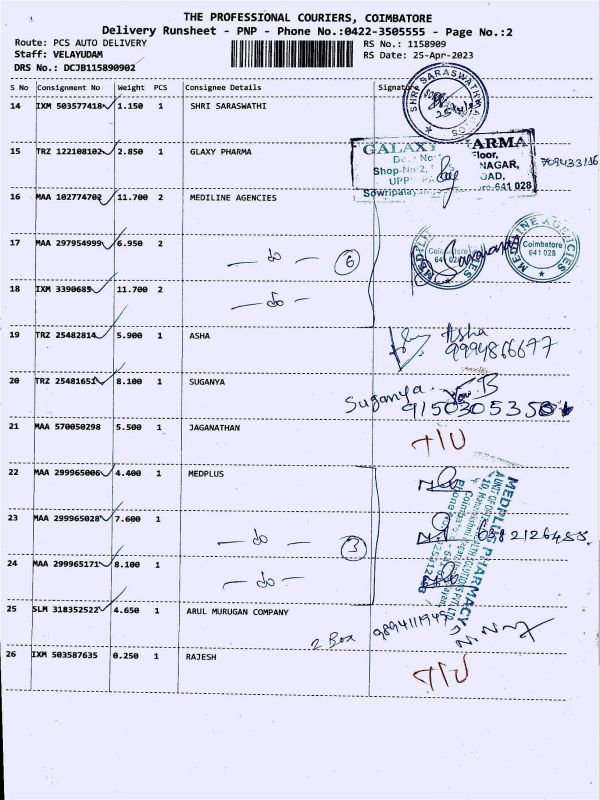 THE PROFESSIONAL COURIERS, COIMBATORE
Delivery Runsheet - PNP - Phone No.:0422-3505555 - Page No.:2
Route: PCS AUTO DELIVERY
RS No.: 1158909
Staff: VELAYUDAM
RS Date: 25-Apr-2023
DRS No.: DCJB115890902
S No Consignment No Weight PCS Consignee Details Signature
14 IXM 503577418 1.150 1 SHRI SARASWATHI
SHRI SARASWATH
15 TRZ 122108102 2.850 1 GLAXY PHARMA
GALAXY ARMA
Shop No 2, NAGAR,
641 028
16 MAA 102774702 11.700 2 MEDILINE AGENCIES
17 MAA 297954999 6.950 2
— do — 6
MEDILINE AGENCIES
Coimbatore
641 028
18 IXM 3390685 11.700 2
— do —
19 TRZ 25482814 5.900 1 ASHA
Asha
9994866677
20 TRZ 25481651 8.100 1 SUGANYA
Suganya
21 MAA 570050298 5.500 1 JAGANATHAN
22 MAA 299965006 4.400 1 MEDPLUS
MEDPLUS PHARMACY
23 MAA 299965028 7.600 1
— do — 3
24 MAA 299965171 8.100 1
— do —
25 SLM 318352522 4.650 1 ARUL MURUGAN COMPANY
2 Box
26 IXM 503587635 0.250 1 RAJESH